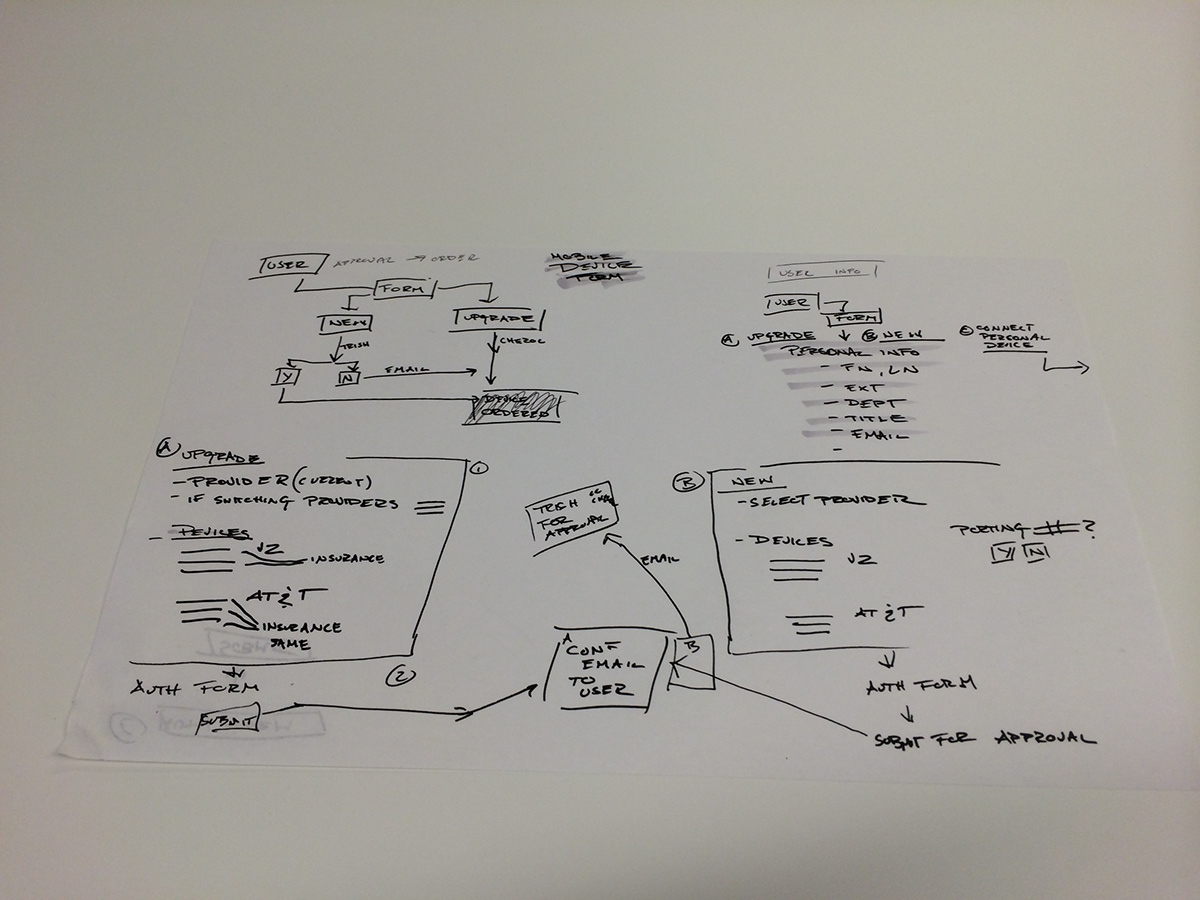 MOBILE
DEVICE
FORM
USER
APPROVAL → ORDER
FORM
NEW
UPGRADE
TRISH
CHEROL
Y
N
EMAIL
DEVICE
ORDERED
USER INFO
USER
FORM
A UPGRADE
B NEW
C CONNECT
PERSONAL
DEVICE
PERSONAL INFO
- FN, LN
- EXT
- DEPT
- TITLE
- EMAIL
-
A UPGRADE
- PROVIDER (CURRENT)
- IF SWITCHING PROVIDERS
- DEVICES
VZ
INSURANCE
AT&T
INSURANCE
SAME
1
2
AUTH FORM
SUBMIT
TRISH CC
FOR
APPROVAL
EMAIL
A
CONF
EMAIL
TO
USER
B
B
NEW
- SELECT PROVIDER
- DEVICES
VZ
AT&T
PORTING #?
Y N
AUTH FORM
SUBMIT FOR APPROVAL